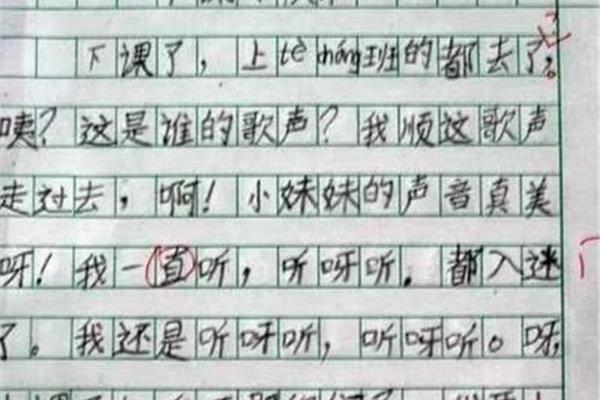 下课了，上tècháng班的都去了。
咦？这是谁的歌声？我顺这歌声
走过去，啊！小妹妹的声音真美
呀！我一直听，听呀听。都入迷
了。我还是听呀听，听呀听。呀，